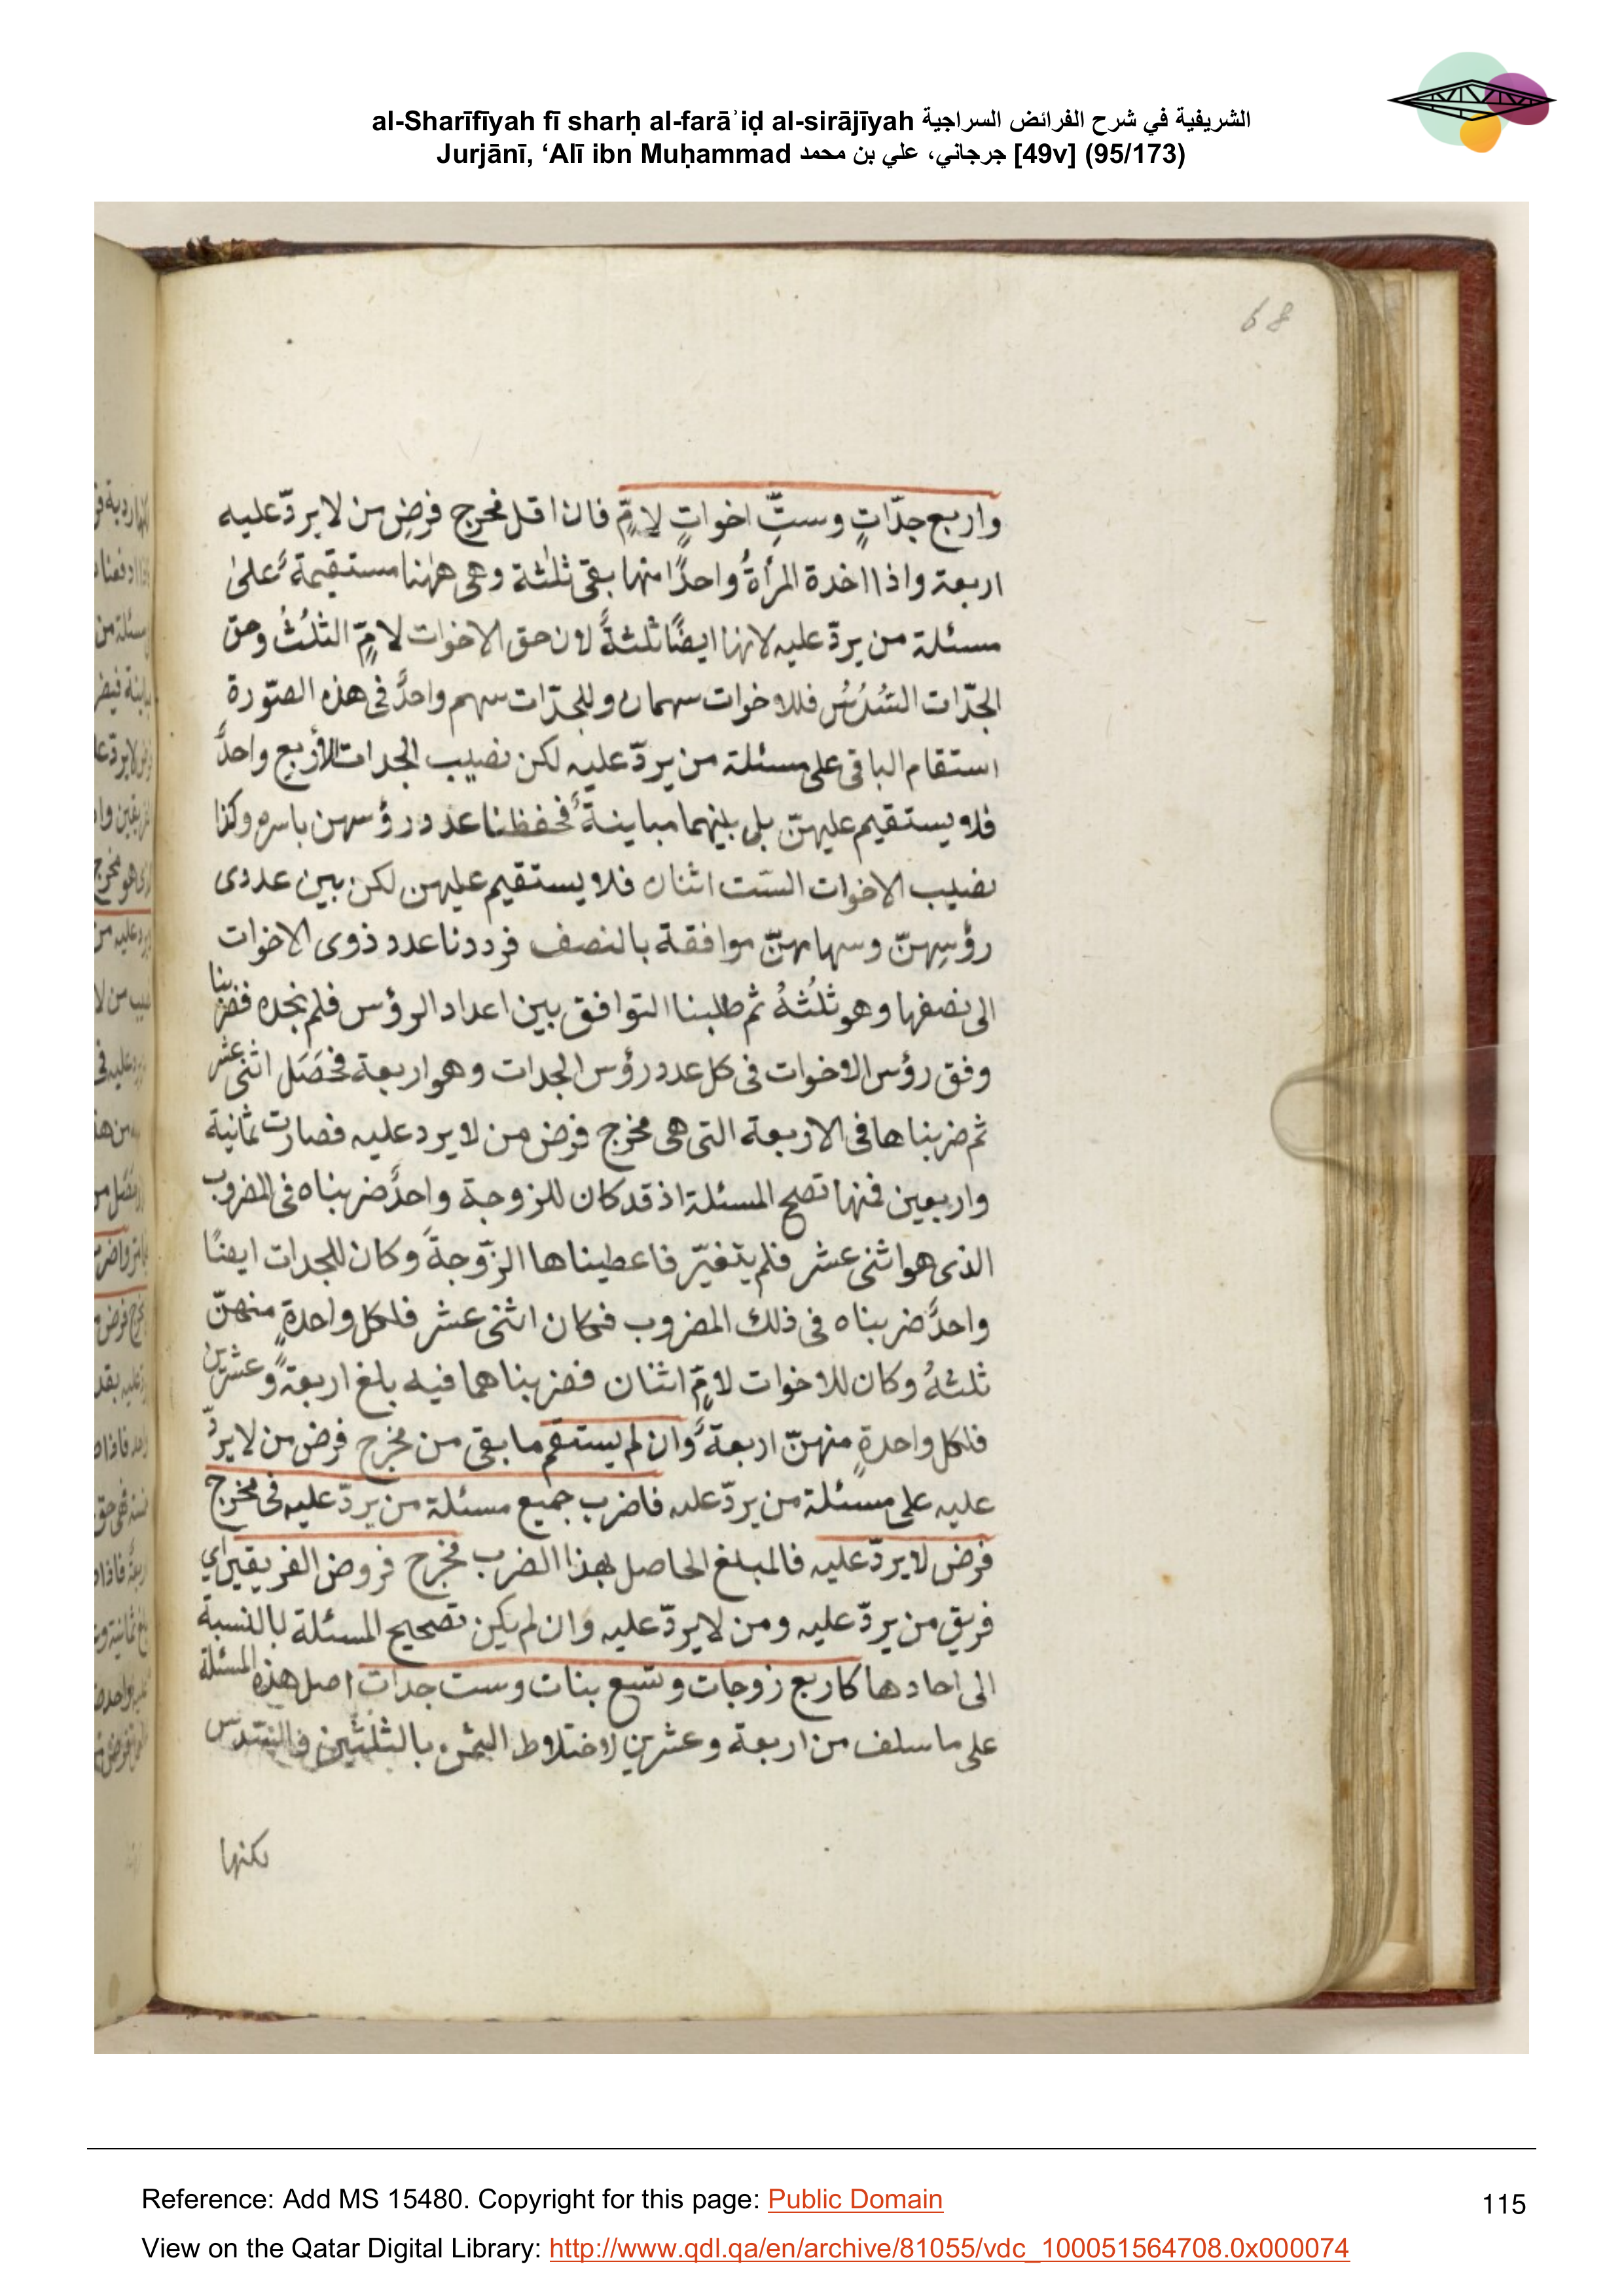 al-Sharīfīyah fī sharḥ al-farāʾiḍ al-sirājīyah الشريفية في شرح الفرائض السراجية
Jurjānī, ‘Alī ibn Muḥammad جرجاني، علي بن محمد [49v] (95/173)
68
واربع جدّاتٍ وستِّ اخواتٍ لامٍّ فان اقل مخرج فرضِ من لا يردّ عليه
اربعة واذا اخدة المرأةُ واحدًا منها بقى ثلثة وهى ههنا مستقيمةٌ على
مسئلة من يردّ عليه لانها ايضًا ثلثةٌ لان حق الاخوات لامٍّ الثلُثُ وحق
الجدّات السُدُسُ فللاخوات سهمان وللجدّات سهم واحدٌ فى هذه الصّورة
استقام الباقى على مسئلة من يردّ عليه لكن نصيب الجدات الأربع واحدٌ
فلا يستقيم عليهنّ بل بينهما مباينةٌ فحفظنا عدد رؤسهن باسره وكذا
نصيب الاخوات الست اثنان فلا يستقيم عليهن لكن بين عددى
رؤسهنّ وسهامهنّ موافقة بالنصف فرددنا عدد ذوى الاخوات
الى نصفها وهو ثلُثهُ ثم طلبنا التوافق بين اعداد الرؤس فلم نجده فضربنا
وفق رؤس الاخوات فى كل عدد رؤس الجدات وهو اربعة فحَصَل اثنى عشر
ثم ضربناها فى الاربعة التى هى مخرج فرض من لا يرد عليه فصارت ثمانية
واربعين فمنها تصح المسئلة اذ قد كان للزوجة واحدٌ ضربناه فى المضروب
الذى هو اثنى عشر فلم يتغيّر فاعطيناها الزّوجةَ وكان للجدات ايضًا
واحدٌ ضربناه فى ذلك المضروب فكان اثنى عشر فلكل واحدةٍ منهنّ
ثلثةُ وكان للاخوات لامٍّ اثنان فضربناهما فيه بلغ اربعةً وعشرين
فلكل واحدةٍ منهنّ اربعةٌ وان لم يستقم ما بقى من مخرج فرض من لا يردّ
عليه على مسئلة من يردّ عليه فاضرب جميع مسئلة من يردّ عليه فى مخرج
فرض لا يردّ عليه فالمبلغ الحاصل بهذا الضرب مخرج فروض الفريقين اي
فريق من يردّ عليه ومن لا يردّ عليه وان لم يكن تصحيح المسئلة بالنسبة
الى احادها كاربع زوجات وتسع بنات وست جدات اصل هذه المسئلة
على ما سلف من اربعة وعشرين لاختلاط الثمن بالثلثين والسّدس
لكنها
Reference: Add MS 15480. Copyright for this page: Public Domain
115
View on the Qatar Digital Library: http://www.qdl.qa/en/archive/81055/vdc_100051564708.0x000074